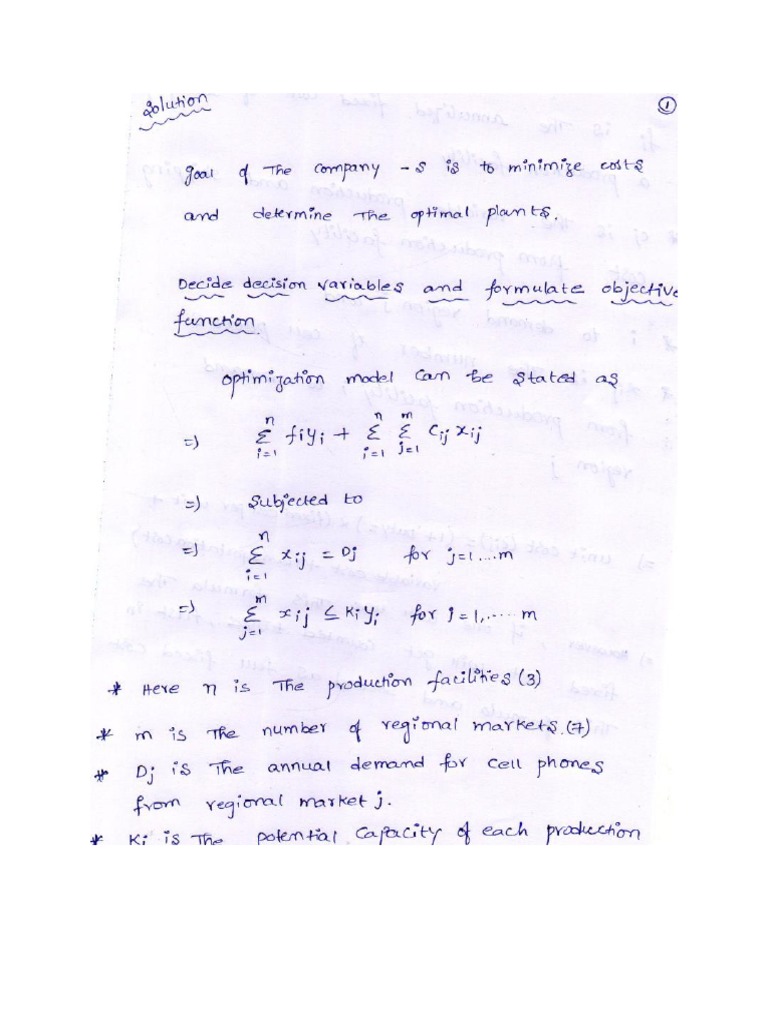 Solution
①
goal of The company -s is to minimize costs
and determine The optimal plants.
Decide decision variables and formulate objective
function.
optimization model can be stated as
=) n Σ i=1 fiyi + n Σ i=1 m Σ j=1 Cij xij
=) Subjected to
=) n Σ i=1 xij = Dj for j=1....m
=) m Σ j=1 xij ≤ Kiyi for i=1,.....m
* Here n is The production facilities (3)
* m is The number of regional markets.(7)
* Dj is The annual demand for cell phones
from regional market j.
* Ki is The potential capacity of each production